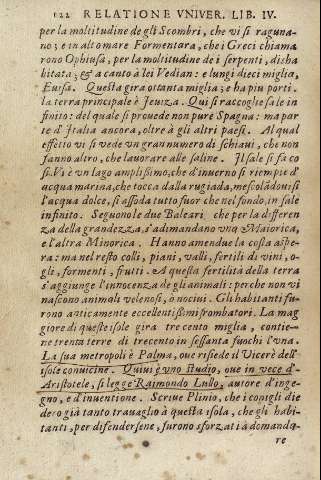 122 RELATIONE VNIVER. LIB. IV.
per la moltitudine de gli Scombri, che vi si raguna-
no; e in alto mare Formentara, che i Greci chiama
rono Ophiusa, per la moltitudine de i serpenti, disha
bitata; & a canto à lei Vedian: e lungi dieci miglia,
Euisa. Questa gira ottanta miglia; e ha piu porti.
la terra principale è Ieuiza. Qui si raccoglie sale in
finito: del quale si prouede non pure Spagna: ma par
te d'Italia ancora, oltre à gli altri paesi. Al qual
effetto vi si vede vn gran numero di schiaui, che non
fanno altro, che lauorare alle saline. Il sale si fa co
si. Vi è vn lago amplissimo, che d'inuerno si riempie d'
acqua marina, che tocca dalla rugiada, mescolādoui si
l'acqua dolce, si assoda tutto fuor che nel fondo, in sale
infinito. Seguono le due Baleari che per la differen
za della grandezza, s'adimandano vna Maiorica,
e l'altra Minorica. Hanno amendue la costa aspe-
ra: ma nel resto colli, piani, valli, fertili di vini, o-
gli, formenti, frutti. A questa fertilità della terra
s'aggiunge l'innocenza de gli animali: perche non vi
nascono animali velenosi, o nociui. Gli habitanti fu-
rono anticamente eccellentissimi frombatori. La mag
giore di queste isole gira trecento miglia, contie-
ne trenta terre di trecento in sessanta fuochi l'vna.
La sua metropoli è Palma, oue risiede il Vicerè dell'
isole conuicine. Quiui è vno studio, oue in vece d'
Aristotele, si legge Raimondo Lullo, autore d'inge-
gno, e d'inuentione. Scriue Plinio, che i conigli die
dero già tanto trauaglio à questa isola, che gli habi-
tanti, per difendersene, furono sforzati à domanda-
re